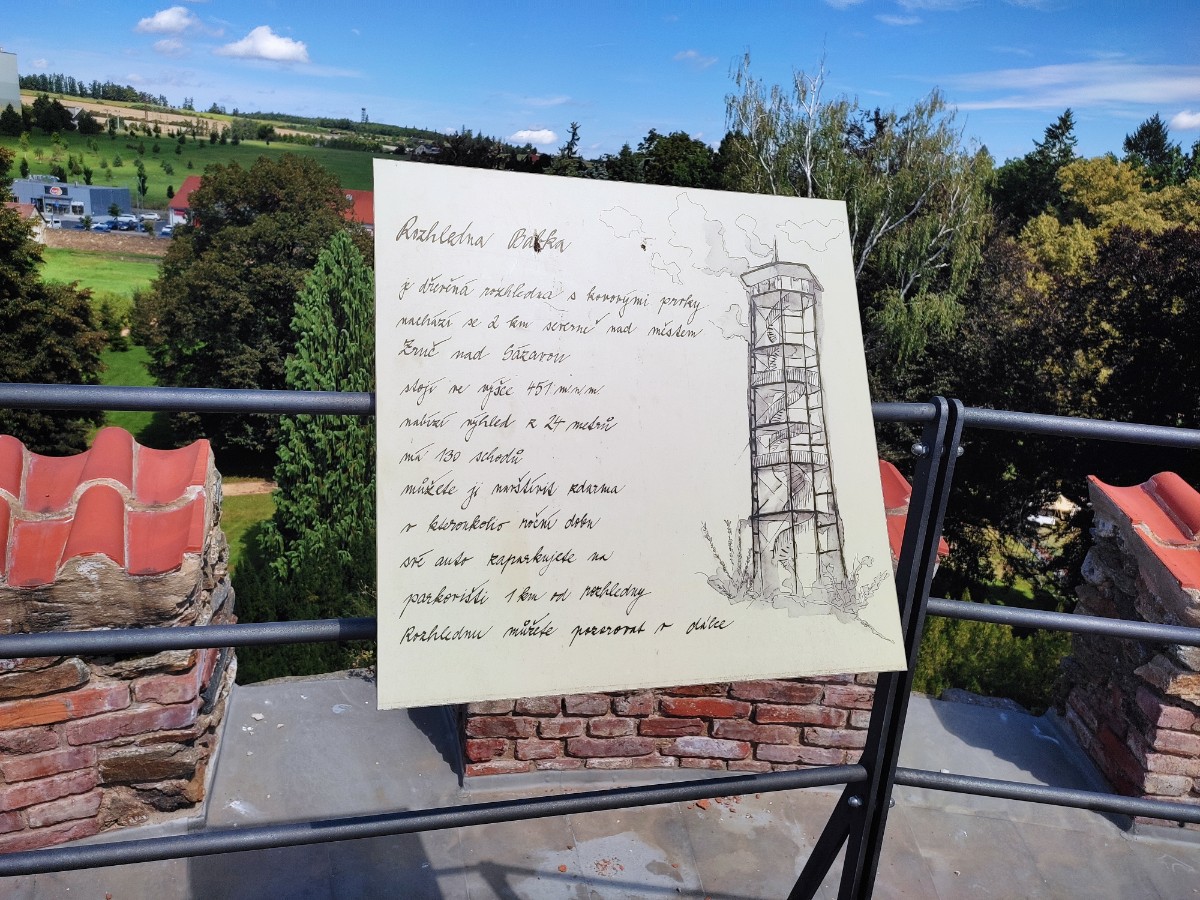 Rozhledna Babka
je dřevěná rozhledna s kovovými prvky
nachází se 2 km severně nad městem
Zruč nad Sázavou
stojí ve výšce 451 m n m.
nabízí výhled z 24 metrů
má 130 schodů
můžete ji navštívit zdarma
v kteroukoliv roční dobu
své auto zaparkujete na
parkovišti 1 km od rozhledny
Rozhlednu můžete pozorovat v dálce